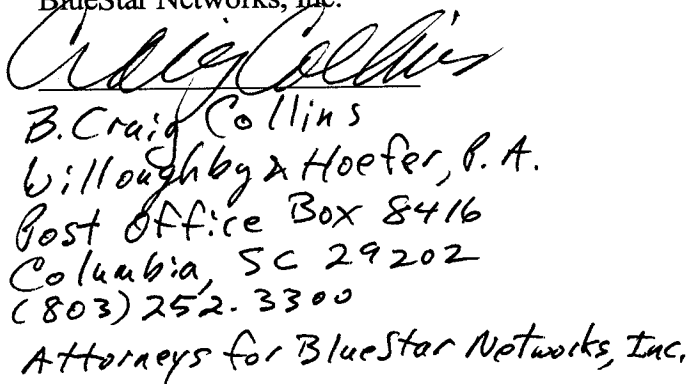 BlueStar Networks, Inc.
Craig Collins
B. Craig Collins
Willoughby & Hoefer, P. A.
Post Office Box 8416
Columbia, SC 29202
(803) 252-3300
Attorneys for BlueStar Networks, Inc.